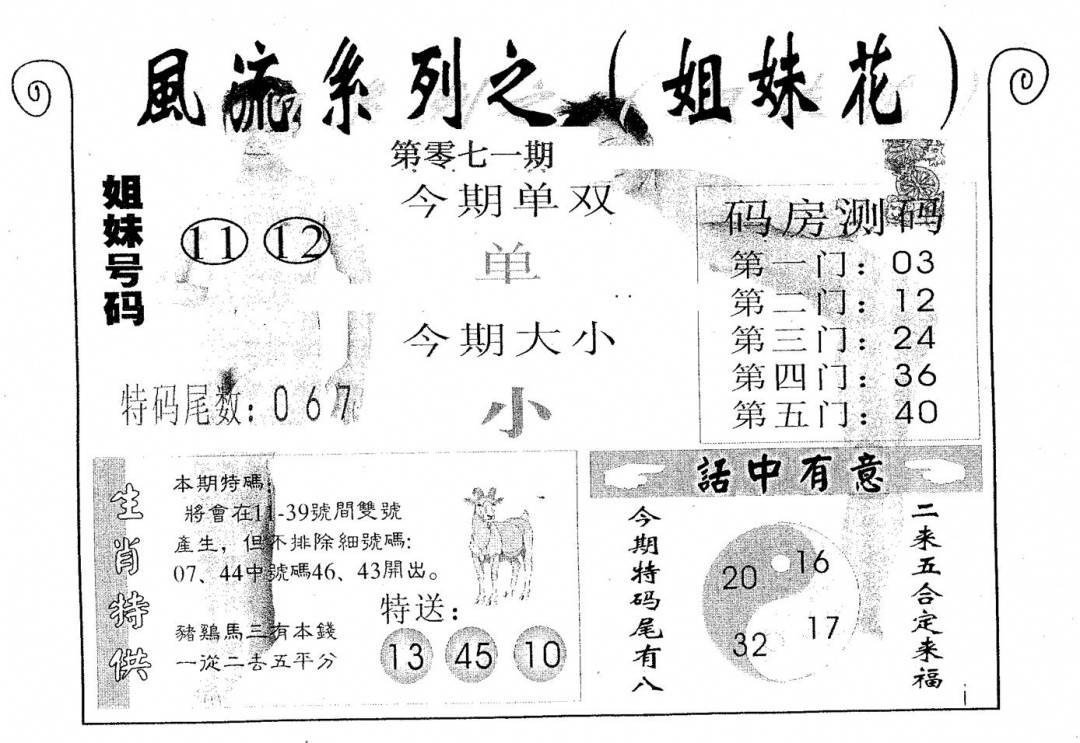 風流系列之（姐妹花）
第零七一期
姐妹号码
11 12
特码尾数：067
今期单双
单
今期大小
小
码房测码
第一门：03
第二门：12
第三门：24
第四门：36
第五门：40
生肖特供
本期特碼：
將會在11-39號間雙號
產生，但不排除細號碼：
07、44中號碼46、43開出。
豬鷄馬三有本錢
一從二去五平分
特送：
13 45 10
話中有意
今期特码尾有八
20 16
32 17
二来五合定来福